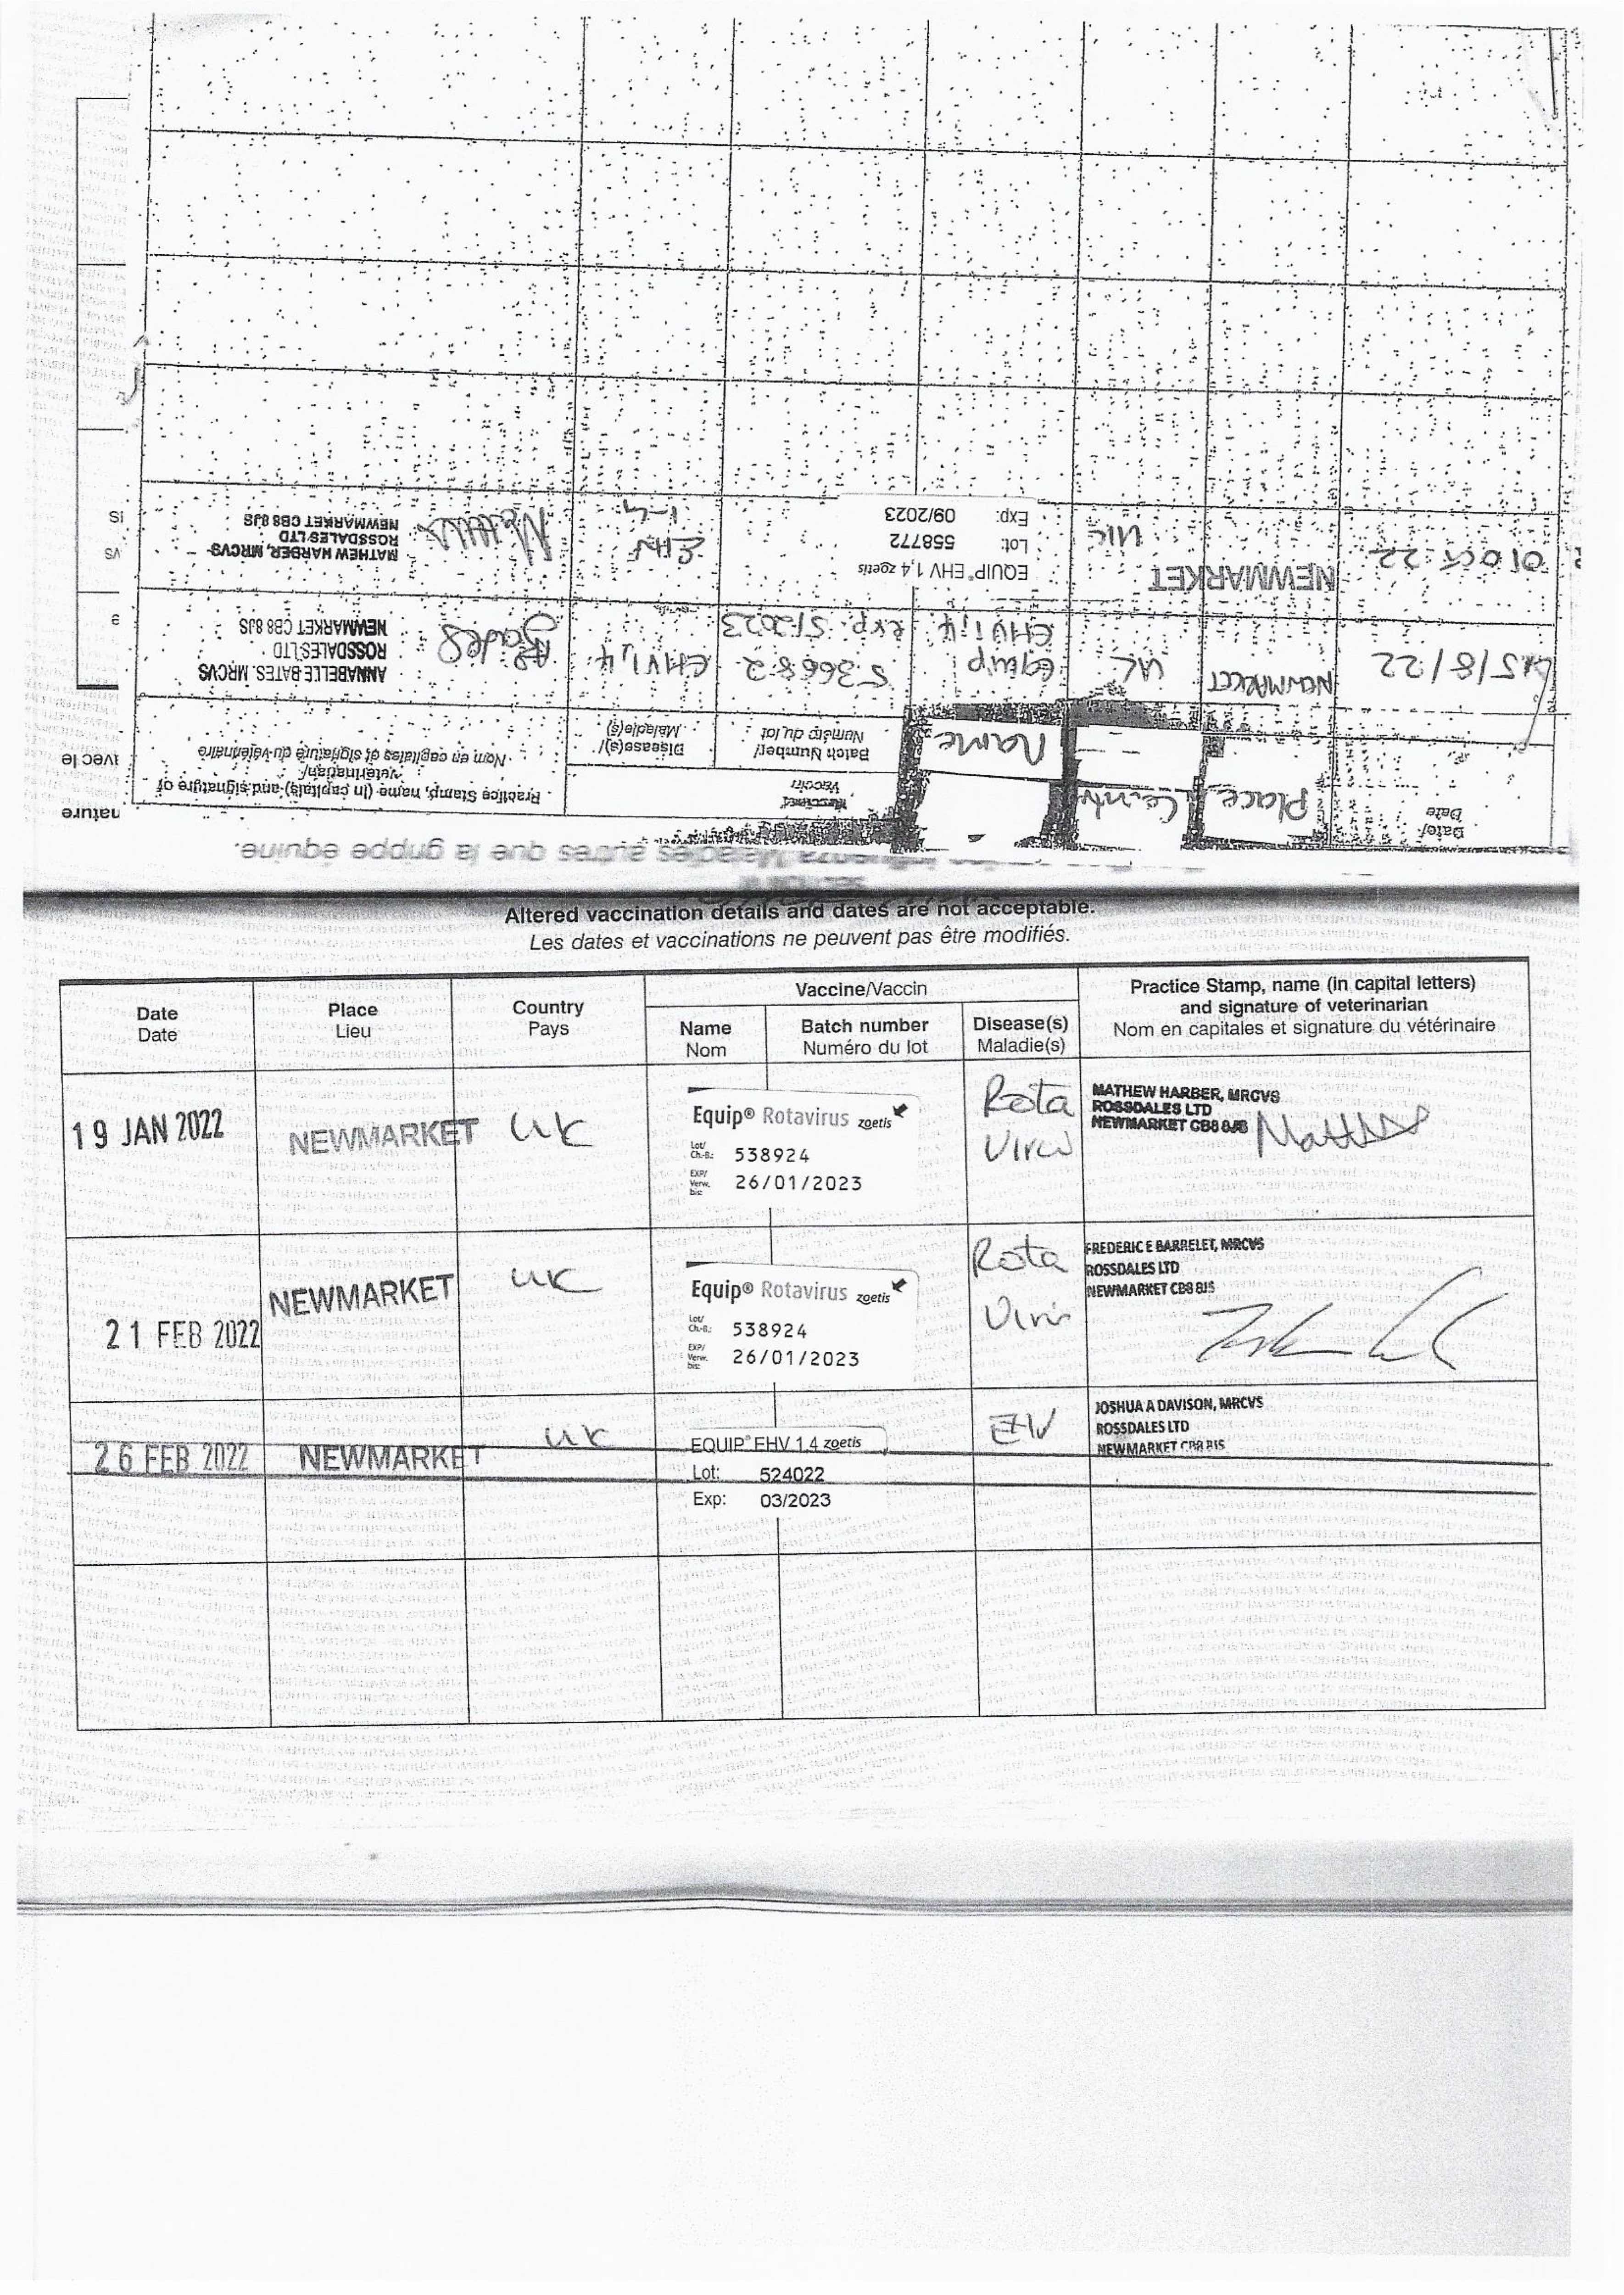 nature
avec le
Maladies autres que la grippe equine.
Date/
Date
Place
Name
Vaccin
Batch Number/
Numéro du lot
Disease(s)/
Maladie(s)
Practice Stamp, name (in capitals) and signature of
veterinarian/
Nom en capitales et signature du vétérinaire
/8/22
NEWMARKET
UK
Equip
EHV 1,4
53668 2
exp. 5/2023
EHV1,4
ANNABELLE BATES, MRCVS
ROSSDALES LTD
NEWMARKET CB8 8JS
ABates
01 OCT 22
NEWMARKET
UK
EQUIP® EHV 1,4 zoetis
Lot: 558772
Exp: 09/2023
EHV
1-4
MATHEW HARBER, MRCVS
ROSSDALES LTD
NEWMARKET CB8 8JS
Altered vaccination details and dates are not acceptable.
Les dates et vaccinations ne peuvent pas être modifiés.
Date
Date
Place
Lieu
Country
Pays
Vaccine/Vaccin
Name
Nom
Batch number
Numéro du lot
Disease(s)
Maladie(s)
Practice Stamp, name (in capital letters)
and signature of veterinarian
Nom en capitales et signature du vétérinaire
19 JAN 2022
NEWMARKET
UK
Equip® Rotavirus zoetis
Lot/
Ch.-B.: 538924
EXP/
Verw.
bis: 26/01/2023
Rota
Virus
MATHEW HARBER, MRCVS
ROSSDALES LTD
NEWMARKET CB8 8JS
21 FEB 2022
NEWMARKET
UK
Equip® Rotavirus zoetis
Lot/
Ch.-B.: 538924
EXP/
Verw.
bis: 26/01/2023
Rota
Virus
FREDERIC E BARRELET, MRCVS
ROSSDALES LTD
NEWMARKET CB8 8JS
26 FEB 2022
NEWMARKET
UK
EQUIP® EHV 1,4 zoetis
Lot: 524022
Exp: 03/2023
EHV
JOSHUA A DAVISON, MRCVS
ROSSDALES LTD
NEWMARKET CB8 8JS